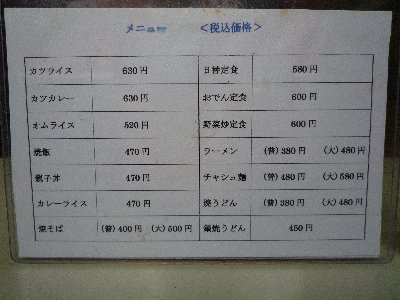 メニュー <税込価格>
カツライス 630円 日替定食 580円
カツカレー 630円 おでん定食 600円
オムライス 520円 野菜炒定食 600円
焼飯 470円 ラーメン (普)380円 (大)480円
親子丼 470円 チャシュ麺 (普)480円 (大)580円
カレーライス 470円 焼うどん (普)380円 (大)480円
焼そば (普)400円 (大)500円 鍋焼うどん 450円